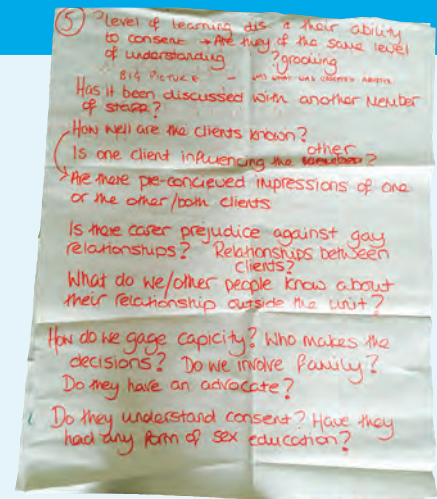 ⑤ ? level of learning dis & their ability
to consent → Are they of the same level
of understanding ? grooming
BIG PICTURE –
Has it been discussed with another member
of staff?
How well are the clients known?
Is one client influencing the other?
Are there pre-concieved impressions of one
or the other/both clients
Is there carer prejudice against gay
relationships? Relationships between
clients?
What do we/other people know about
their relationship outside the unit?
How do we gage capicity? Who makes the
decisions? Do we involve family?
Do they have an advocate?
Do they understand consent? Have they
had any form of sex education?